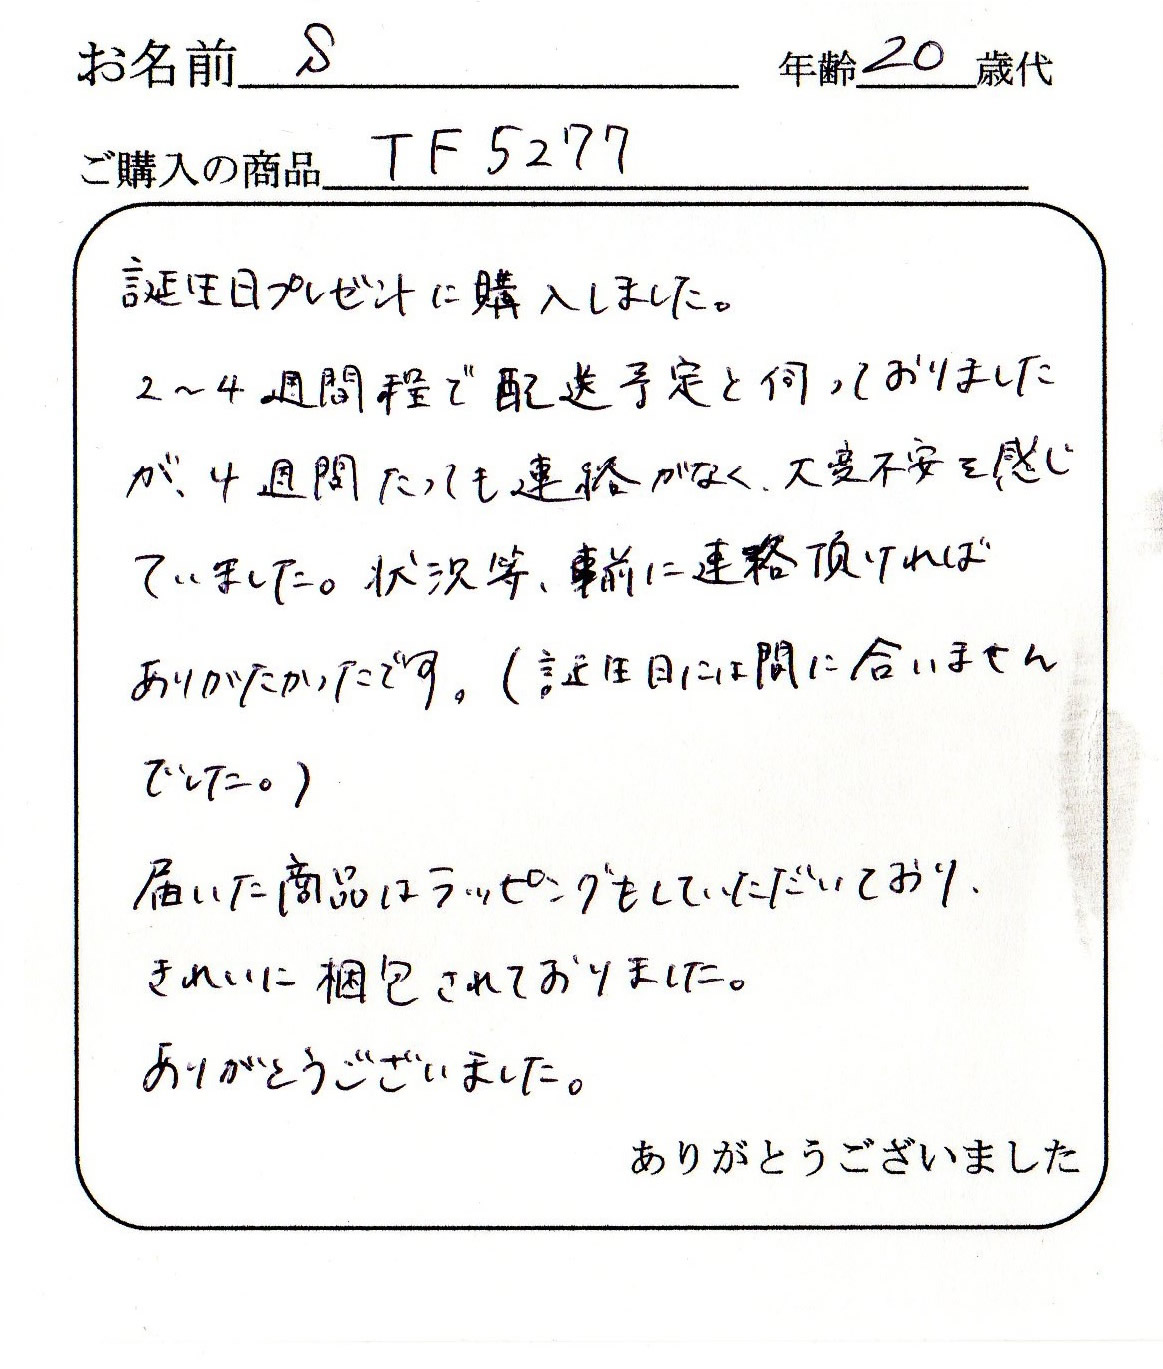 お名前 S 年齢 20 歳代
ご購入の商品 TF5277
誕生日プレゼントに購入しました。
2〜4週間程で配送予定と伺っておりました
が、4週間たっても連絡がなく、大変不安を感じ
ていました。状況等、事前に連絡頂ければ
ありがたかったです。(誕生日には間に合いません
でした。)
届いた商品はラッピングもしていただいており、
きれいに梱包されておりました。
ありがとうございました。
ありがとうございました